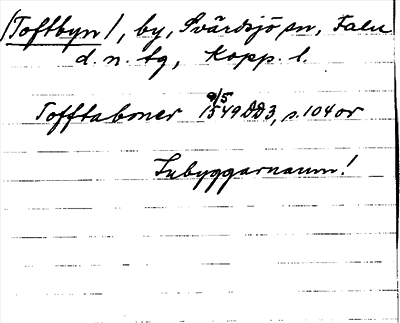 /Toftbyn/, by, Svärdsjö sn, Falu
d. n. tg, Kopp. l.
Tofftaboner 9/5 1549 DD3, s. 104 or
Inbyggarnamn!